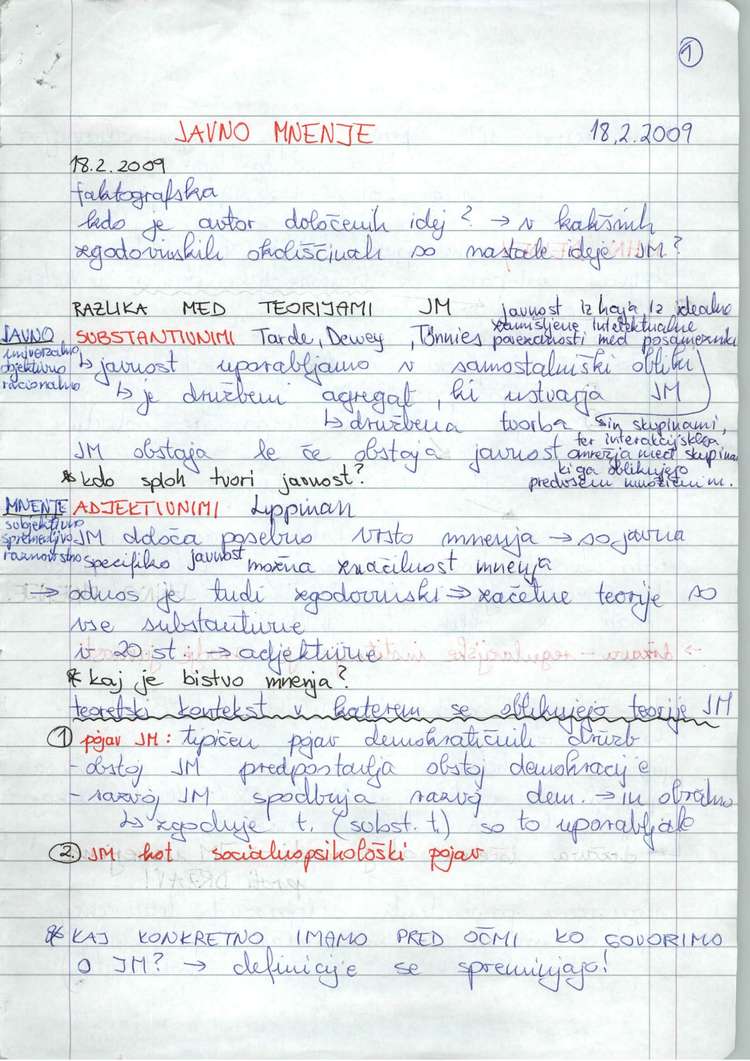 1
JAVNO MNENJE 18.2.2009
18.2.2009
faktografska
kdo je avtor določenih idej? → v kakšnih
zgodovinskih okoliščinah so nastale ideje JM?
RAZLIKA MED TEORIJAMI JM
javnost izhaja iz idealno
zamišljene intelektualne
povezanosti med posamezniki
in skupinami,
ter interakcijskega
omrežja med skupinami
ki ga oblikujejo
predvsem množičnim.
JAVNO
univerzalno
objektivno
racionalno
SUBSTANTIVNIMI Tarde, Dewey, Tönnies
↳ javnost uporabljamo v samostalniški obliki
↳ je družbeni agregat, ki ustvarja JM
↳ družbena tvorba
JM obstaja le če obstaja javnost
* kdo sploh tvori javnost?
MNENJE
subjektivno
spremenljivo
raznovrstno
ADJEKTIVNIMI Lippman
JM določa posebno vrsto mnenja → so javna
specifiko javnost možna značilnost mnenja
→ odnos je tudi zgodovinski ⇒ začetne teorije so
vse substantivne
v 20 st. → adjektivne
* kaj je bistvo mnenja?
teoretski kontekst v katerem se oblikujejo teorije JM
① pojav JM: tipičen pojav demokratičnih družb
- obstoj JM predpostavlja obstoj demokracije
- razvoj JM spodbuja razvoj dem. → in obratno
↳ zgodnje t. (subst. t.) so to uporabljale
② JM kot socialnopsihološki pojav
* KAJ KONKRETNO IMAMO PRED OČMI KO GOVORIMO
O JM? → definicije se spreminjajo!